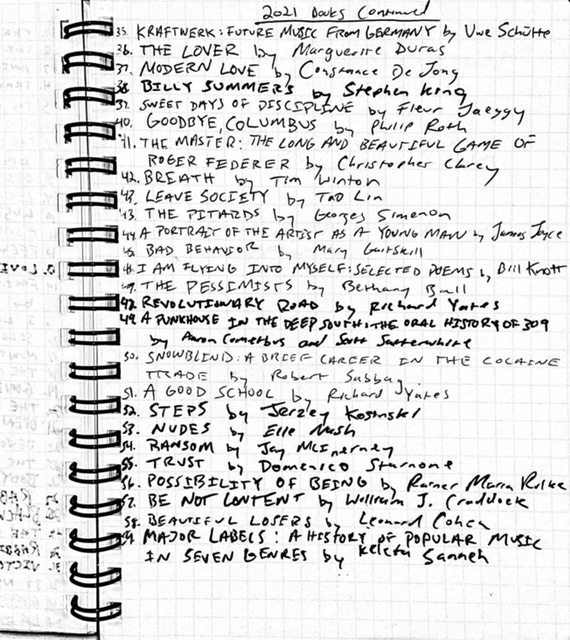 2021 Books Continued
35. KRAFTWERK: FUTURE MUSIC FROM GERMANY by Uwe Schütte
36. THE LOVER by Marguerite Duras
37. MODERN LOVE by Constance De Jong
38. BILLY SUMMERS by Stephen King
39. SWEET DAYS OF DISCIPLINE by Fleur Jaeggy
40. GOODBYE, COLUMBUS by Philip Roth
41. THE MASTER: THE LONG AND BEAUTIFUL GAME OF
ROGER FEDERER by Christopher Clarey
42. BREATH by Tim Winton
43. LEAVE SOCIETY by Tao Lin
43. THE PITARDS by Georges Simenon
44. A PORTRAIT OF THE ARTIST AS A YOUNG MAN by James Joyce
45. BAD BEHAVIOR by Mary Gaitskill
I AM FLYING INTO MYSELF: SELECTED POEMS by Bill Knott
THE PESSIMISTS by Bethany Ball
REVOLUTIONARY ROAD by Richard Yates
49. A PUNKHOUSE IN THE DEEP SOUTH: THE ORAL HISTORY OF 309
by Aaron Cometbus and Scott Satterwhite
50. SNOWBLIND: A BRIEF CAREER IN THE COCAINE
TRADE by Robert Sabbag
51. A GOOD SCHOOL by Richard Yates
52. STEPS by Jerzey Kosinski
53. NUDES by Elle Nash
54. RANSOM by Jay McInerney
55. TRUST by Domenico Starnone
56. POSSIBILITY OF BEING by Rainer Maria Rilke
57. BE NOT CONTENT by William J. Craddock
58. BEAUTIFUL LOSERS by Leonard Cohen
59. MAJOR LABELS: A HISTORY OF POPULAR MUSIC
IN SEVEN GENRES by Kelefa Sanneh